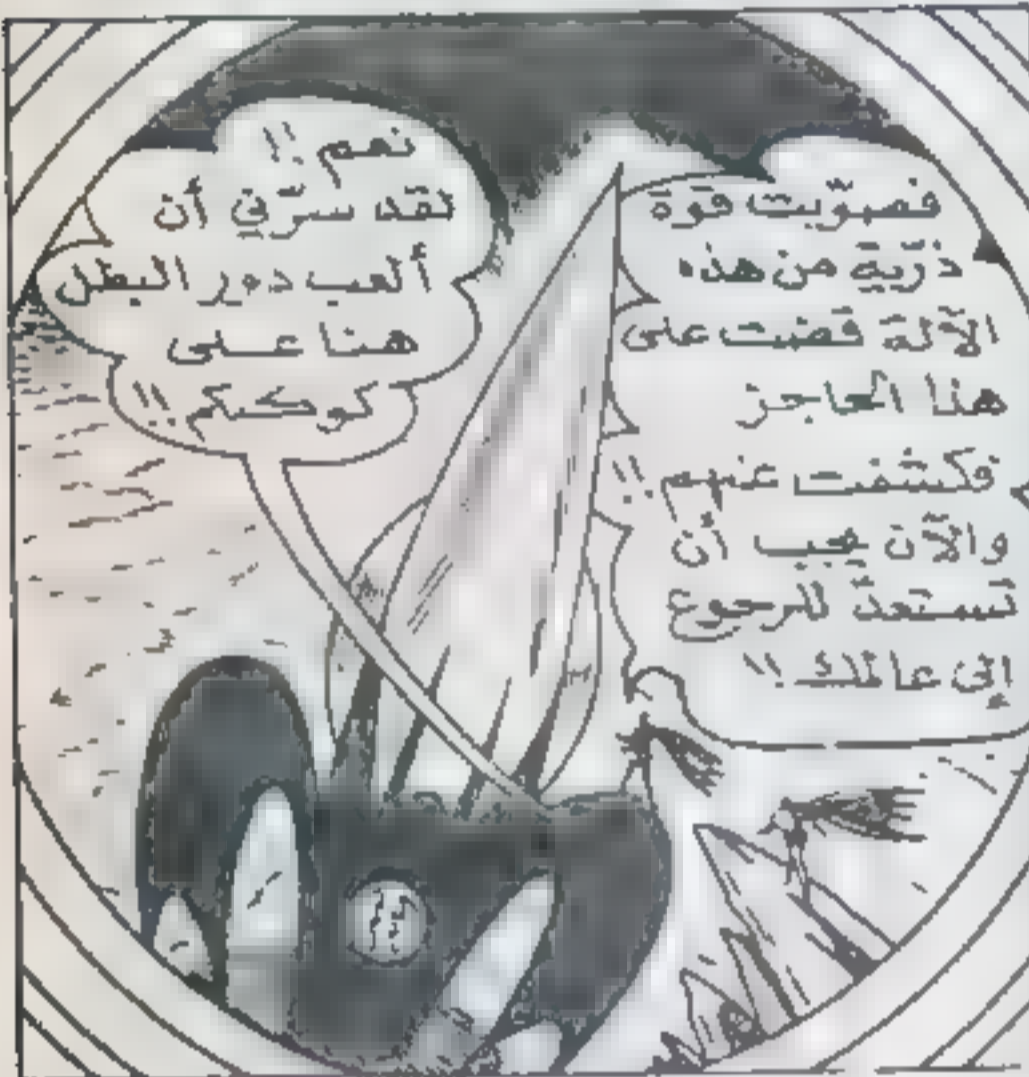 فصوّبت قوة
ذرّية من هذه
الآلة قضت على
هذا الحاجز
وكشفت عنهم !!
والآن يجب أن
تستعدّ للرجوع
إلى عالمك !!
نعم !!
لقد سرّني أن
ألعب دور البطل
هنا على
كوكبكم !!